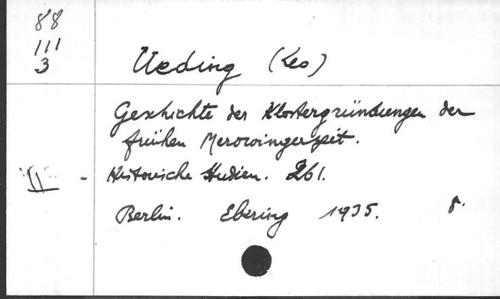 88
111
3
Ueding (Leo)
Geschichte der Klostergründungen der
frühen Merowingerzeit.
II - Historische Studien. 261.
Berlin. Ebering 1935. 8.